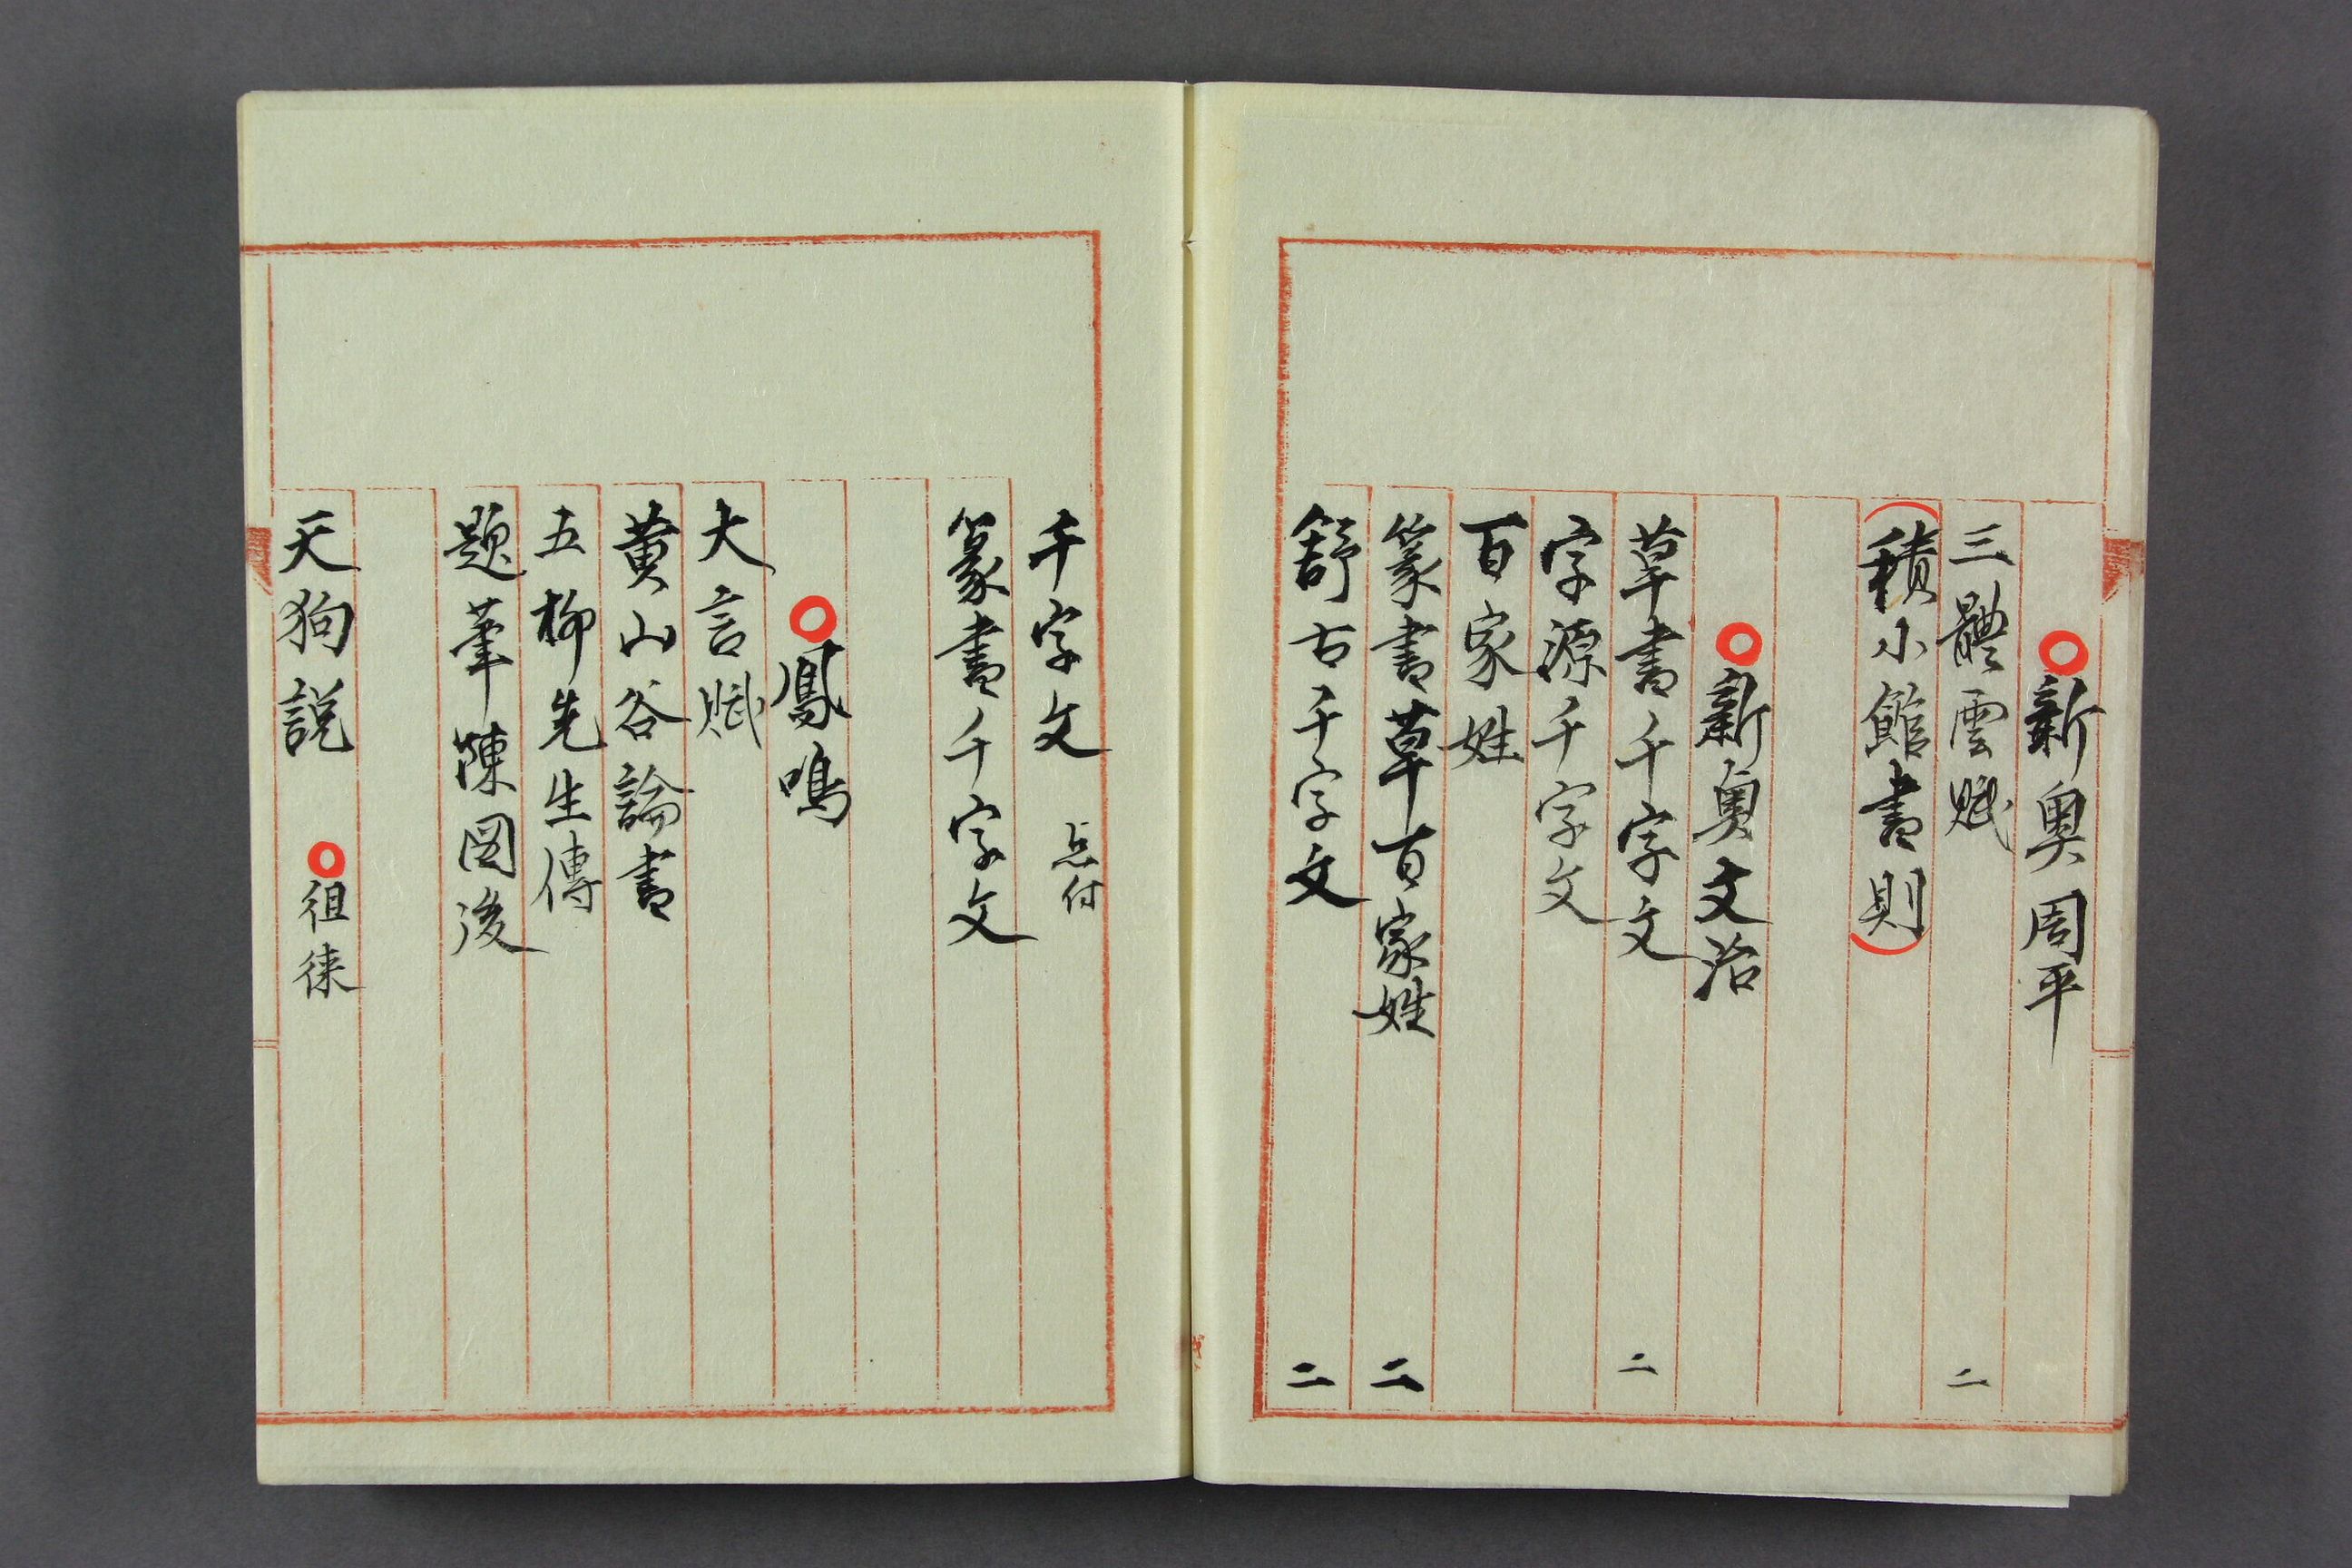 ○新奥周平
三體雲賦 二
(積小館書則)
○新奥文治
草書千字文 二
字源千字文
百家姓
篆書草百家姓 二
舒古千字文 二
千字文 点付
篆書千字文
○鳳鳴
大言賦
黄山谷論書
五柳先生傳
題筆陳図後
天狗説 ○徂徠